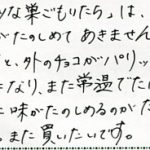 な巣ごもりたら」は、
がたのしめてあきません
と、外のチョコがパリッ
なり、また常温でた
に味がたのしめるのがた
。また買いたいです。